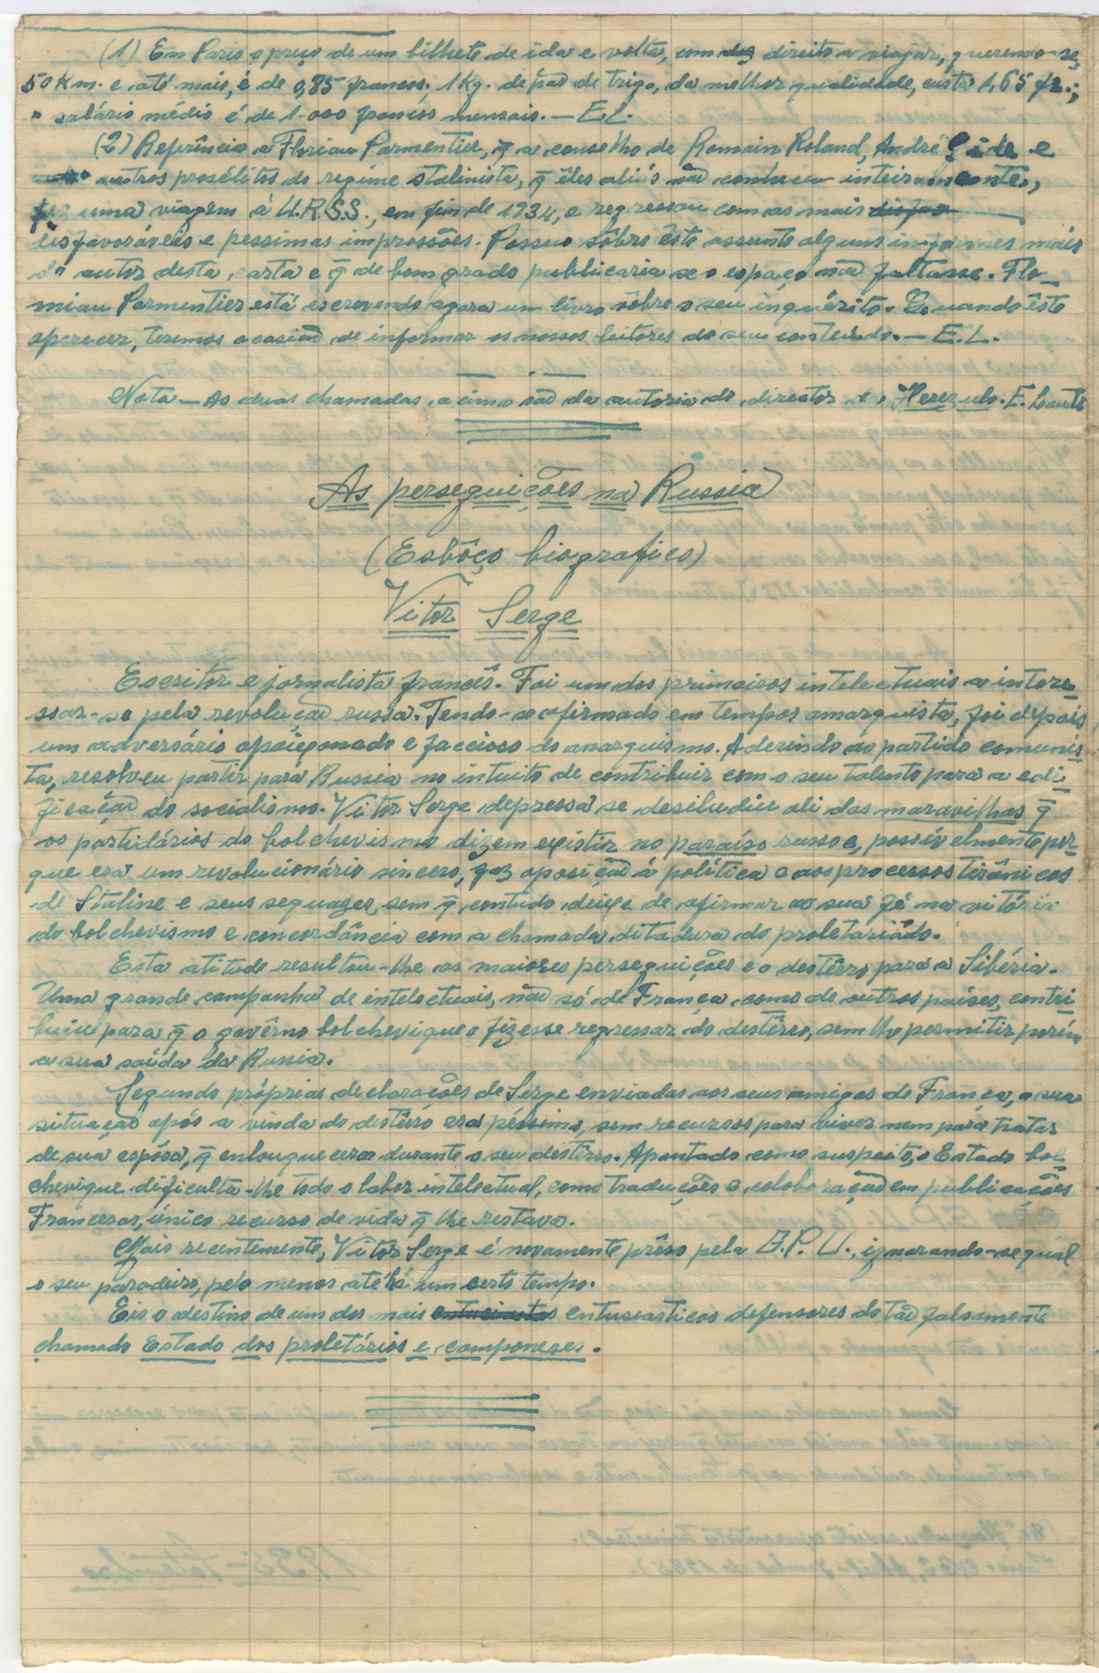 (1) Em Paris o preço de um bilhete de ida e volta, com direito a viajar, querendo-se,
50 km. e até mais, é de 0,85 francos. 1 Kg. de pão de trigo, da melhor qualidade, custa 1,65 fr.;
o salário médio é de 1.000 francos mensais. — E.L.
(2) Referência a Florian Parmentier, q̄ a conselho de Romain Roland, André Gide e
outros prosélitos do regime stalinista, q̄ êles aliás não conhecem inteiramente,
fez uma viagem á U.R.S.S., em fins de 1934, e regressou com as mais
desfavoráveis e pessimas impressões. Possuo sôbre êste assunto alguns informes mais
do autor desta carta e q̄ de bom grado publicaria se o espaço não faltasse. Flo-
rian Parmentier está escrevendo agora um livro sôbre o seu inquérito. Quando êste
aparecer, teremos ocasião de informar os nossos leitores do seu conteúdo. — E.L.
Nota — As duas chamadas acima são da autoria do director de Herezulo. E.
As perseguições na Russia
(Esbôço biografico)
Vitor Serge
Escritor e jornalista francês. Foi um dos primeiros intelectuais a intere-
ssar-se pela revolução russa. Tendo-se afirmado em tempos anarquista, foi depois
um adversário apaixonado e faccioso do anarquismo. Aderindo ao partido comunis-
ta, resolveu partir para Russia no intuito de contribuir com o seu talento para a edi-
ficação do socialismo. Vitor Serge depressa se desiludiu ali das maravilhas q̄
os partidários do bolchevismo dizem existir no paraíso russo e, possívelmente por-
que era um revolucionário sincero, fez oposição á política e aos processos tirânicos
de Staline e seus sequazes, sem q̄, contudo, deixe de afirmar a sua fé na vitória
do bolchevismo e concordância com a chamada ditadura do proletariado.
Esta atitude resultou-lhe as maiores perseguições e o destêrro para a Sibéria.
Uma grande campanha de intelectuais, não só de França, como de outros países, contri-
buiu para q̄ o govêrno bolchevique o fizesse regressar do destêrro, sem lhe permitir porém
a sua saída da Russia.
Segundo próprias declarações de Serge enviadas aos seus amigos de França, a sua
situação após a vinda do destêrro era péssima, sem recursos para viver nem para tratar
de sua espôsa, q̄ enlouquecera durante o seu destêrro. Apontado como suspeito, o Estado bol-
chevique dificulta-lhe todo o labor intelectual, como traduções e colaboração em publicações
Francesas, único recurso de vida q̄ lhe restava.
Mais recentemente, Vitor Serge é novamente prêso pela G.P.U., ignorando-se qual
o seu paradeiro, pelo menos até há um certo tempo.
Eis o destino de um dos mais entusiasticos defensores do tão falsamente
chamado Estado dos proletários e camponeses.